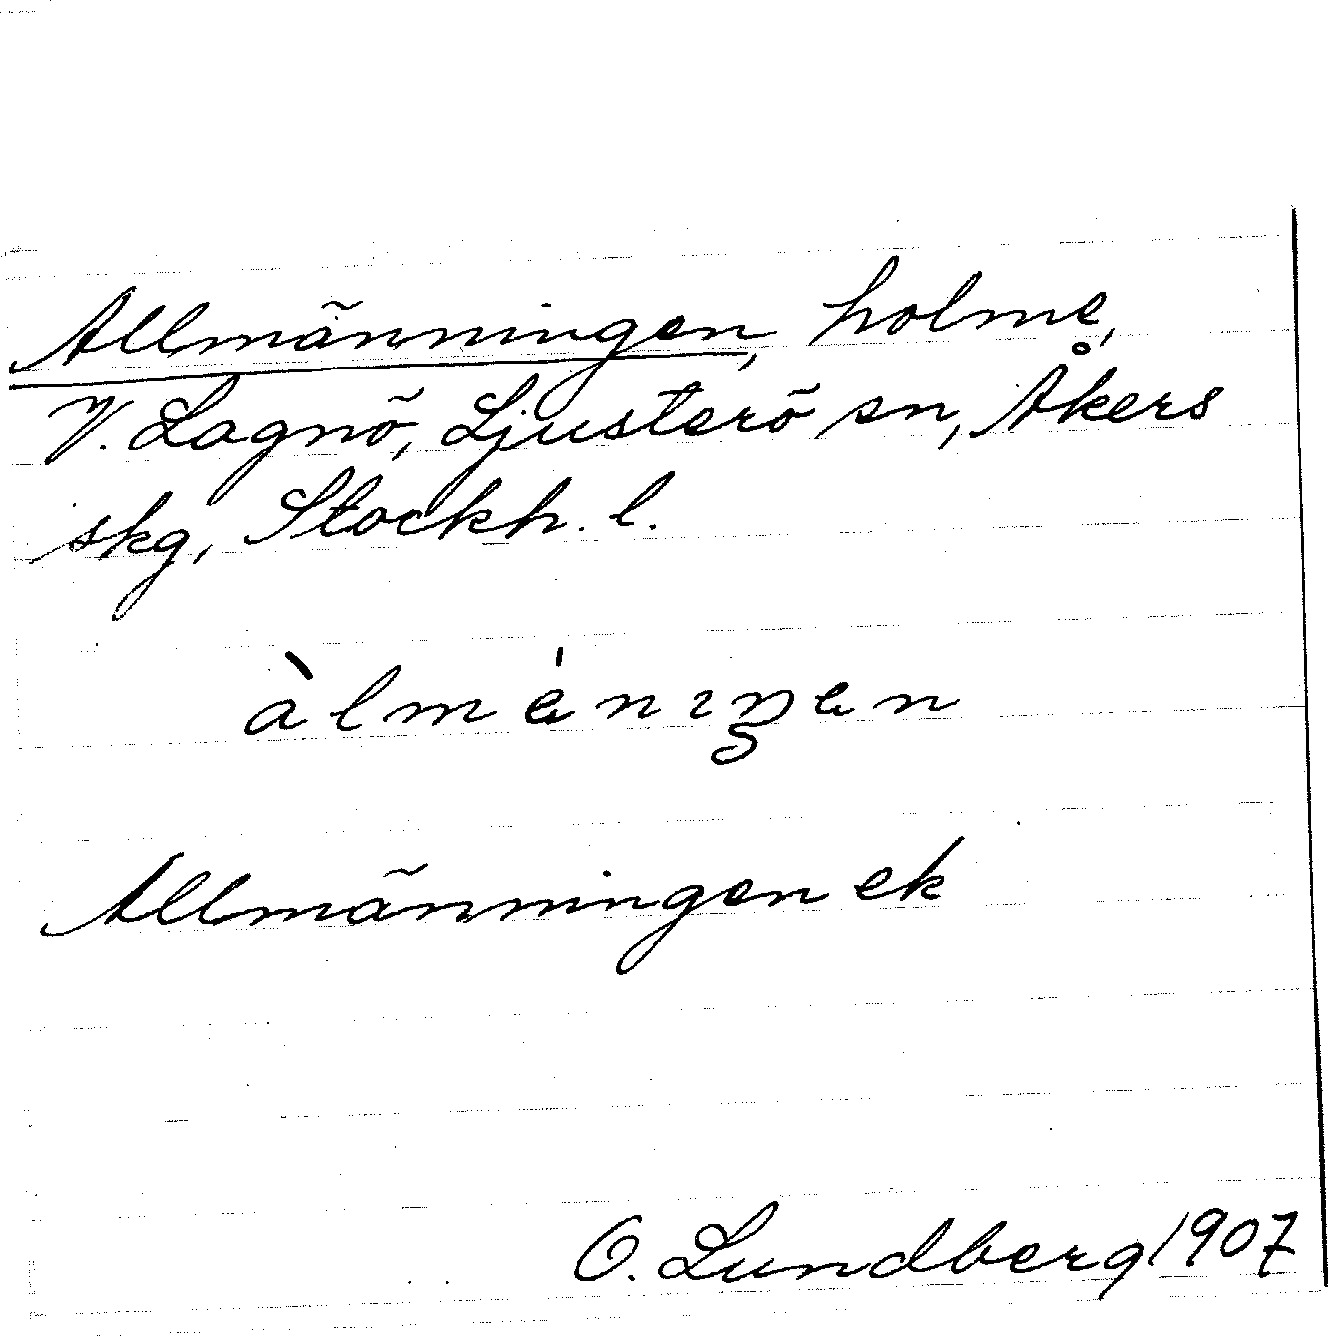 Allmänningen, holme,
V. Lagnö, Ljusterö sn, Åkers
skg, Stockh. l.
àlmániŋən
Allmänningen ek
O. Lundberg 1907